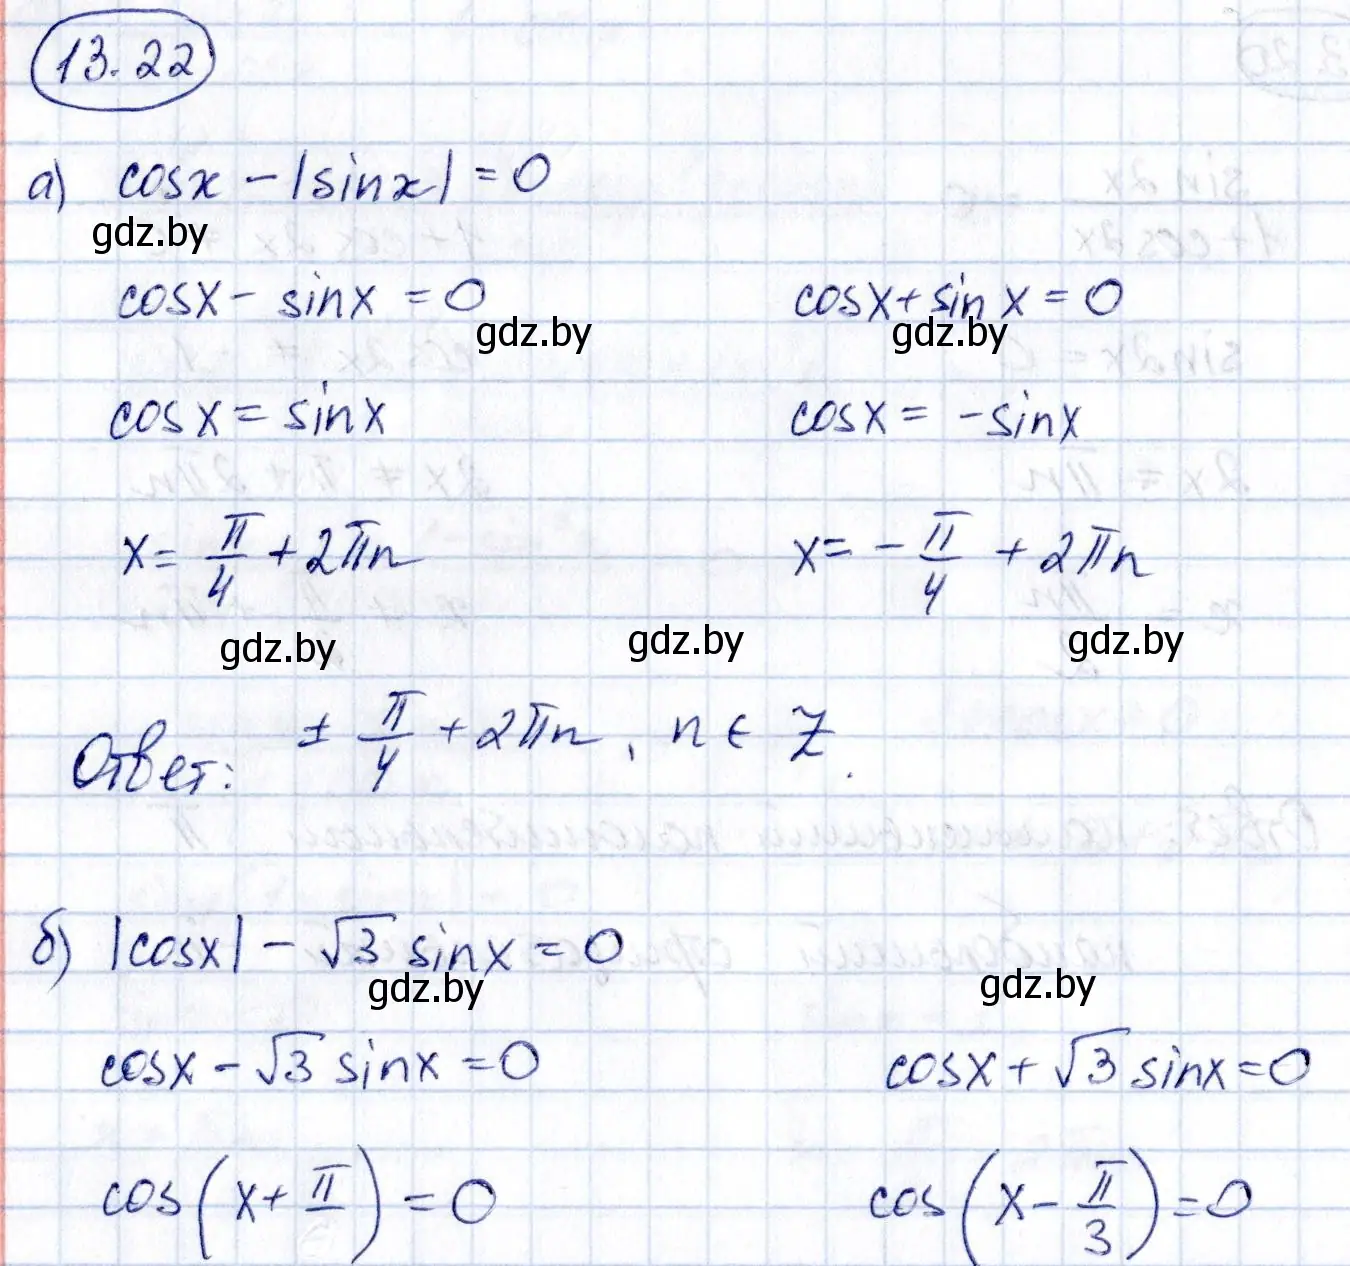 13.22
а) cosx - |sinx| = 0
gdz.by
cosx - sinx = 0 cosx + sinx = 0
gdz.by gdz.by
cosx = sinx cosx = -sinx
x = π/4 + 2πn x = - π/4 + 2πn
gdz.by gdz.by gdz.by
Ответ: ± π/4 + 2πn, n ∈ Z.
б) |cosx| - √3 sinx = 0
gdz.by gdz.by
cosx - √3 sinx = 0 cosx + √3 sinx = 0
cos(x + π/3) = 0 cos(x - π/3) = 0